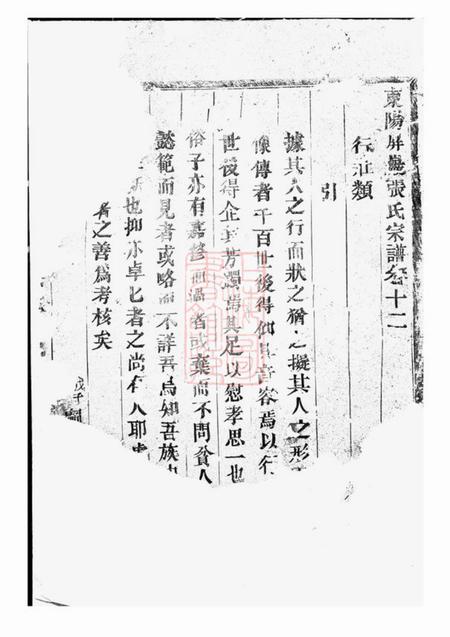 東陽屏巖張氏宗譜卷十二
行狀類
引
據其人之行而狀之猶之擬其人之形
像傳者千百世後得仰其音容焉以行
世後得企其芳躅焉其足以慰孝思一也
俗子亦有嘉修而過者或棄而不問貧人
懿範而見者或略而不詳吾烏知吾族
也抑亦卓匕者之尚有人耶
者之善爲考核矣
戊子